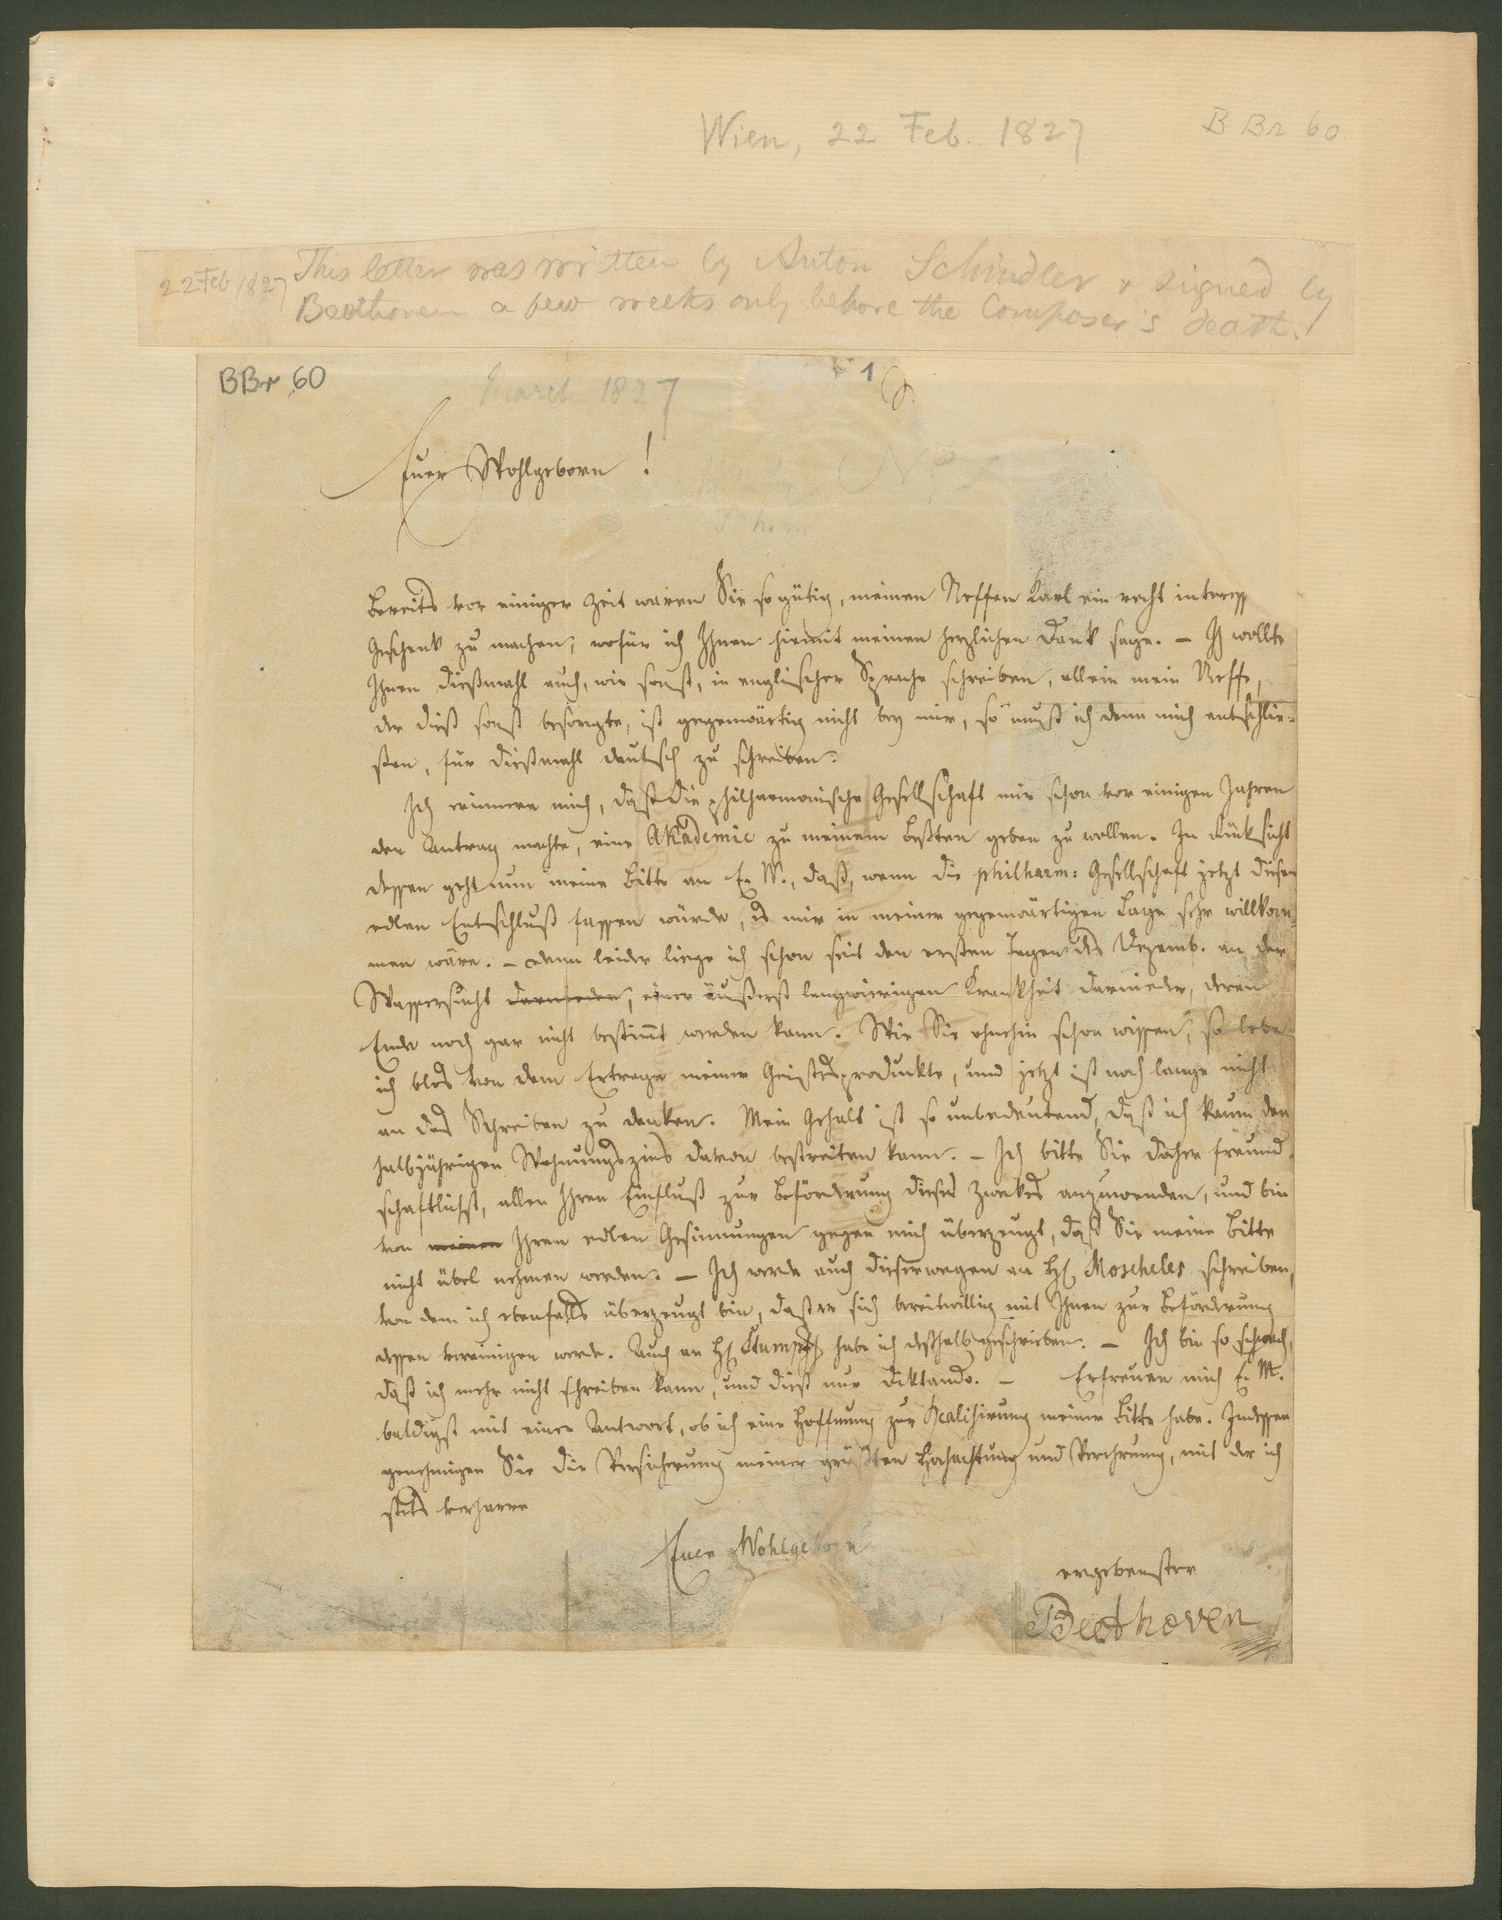 Wien, 22 Feb. 1827
B Br 60.
22 Feb 1827
This letter was written by Anton Schindler & signed by
Beethoven a few weeks only before the Composer's death.
BBr 60
March 1827
1
Euer Wohlgeborn !
Bereits vor einiger Zeit waren Sie so gütig, meinen Neffen Karl ein recht interess
Geschenk zu machen, wofür ich Ihnen hiemit meinen herzlichen Dank sage. – Ich wollte
Ihnen dießmahl auch, wie sonst, in englischer Sprache schreiben, allein mein Neffe,
der dieß sonst besorgte, ist gegenwärtig nicht bey mir, so muß ich denn mich entschlie-
ßen, für dießmahl deutsch zu schreiben.
Ich erinnere mich, daß die philharmonische Gesellschaft mir schon vor einigen Jahren
den Antrag machte, eine Akademie zu meinem Beßten geben zu wollen. In Rücksicht
dessen geht nun meine Bitte an E. W., daß, wenn die philharm: Gesellschaft jetzt diesen
edlen Entschluß fassen würde, es mir in meiner gegenwärtigen Lage sehr willkom-
men wäre. – denn leider liege ich schon seit den ersten Tagen des Dezemb. an der
Wassersucht darnieder, einer äußerst langwierigen Krankheit darnieder, deren
Ende noch gar nicht bestimmt werden kann. Wie Sie ohnehin schon wissen, so lebe
ich blos von dem Ertrage meiner Geistesprodukte, und jetzt ist noch lange nicht
an das Schreiben zu denken. Mein Gehalt ist so unbedeutend, daß ich kaum den
halbjährigen Wohnungszins davon bestreiten kann. – Ich bitte Sie daher freund-
schaftlichst, allen Ihren Einfluß zur Beförderung dieses Zweckes anzuwenden, und bin
von meinen Ihren edlen Gesinnungen gegen mich überzeugt, daß Sie meine Bitte
nicht übel nehmen werden. – Ich werde auch dieserwegen an H. Moscheles schreiben,
von dem ich ebenfalls überzeugt bin, daß er sich bereitwillig mit Ihnen zur Beförderung
dessen vereinigen werde. Auch an H. Stumpff habe ich deßhalb geschrieben. – Ich bin so schwach,
daß ich mehr nicht schreiben kann, und dieß nur diktando. – Erfreuen mich E. W.
baldigst mit einer Antwort, ob ich eine Hoffnung zur Realisirung meiner Bitte habe. Indessen
genehmigen Sie die Versicherung meiner größten Hochachtung und Verehrung, mit der ich
stets verharre
Euer Wohlgeborn
ergebenster
Beethoven